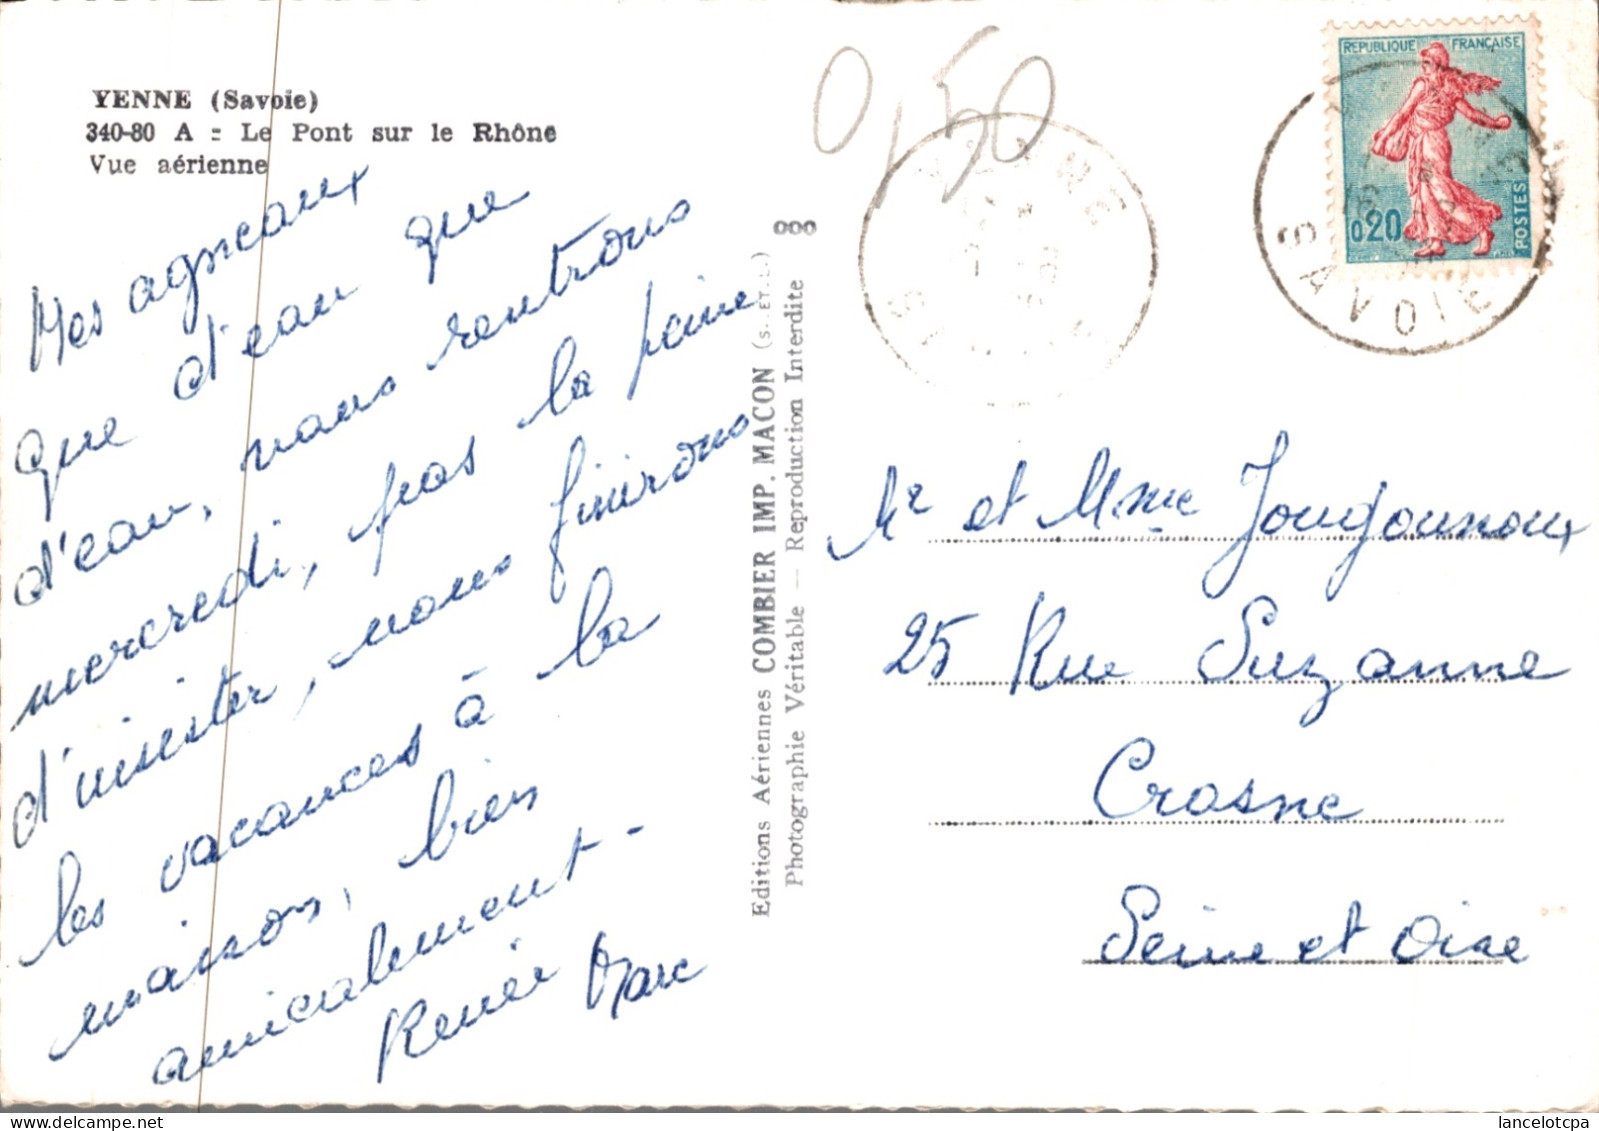 YENNE (Savoie)
340-80 A - Le Pont sur le Rhône
Vue aérienne
Mes agneaux
que d'eau que
d'eau, nous rentrons
mercredi, pas la peine
d'insister, nous finirons
les vacances à la
maison, bien
amicalement -
Renée Marc
Editions Aériennes COMBIER IMP. MACON (S. ET L.)
Photographie Véritable — Reproduction Interdite
0,50
YENNE
SAVOIE
REPUBLIQUE FRANÇAISE
0,20
POSTES
Mr et Mme Jougounoux
25 Rue Suzanne
Crosne
Seine et Oise
delcampe.net
lancelotcpa